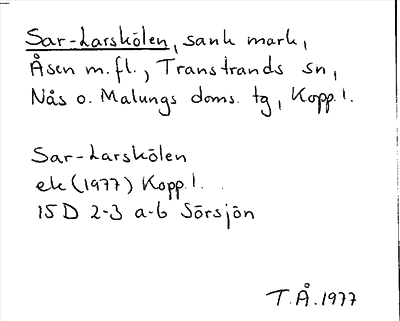 Sar-Larskölen, sank mark,
Åsen m.fl., Transtrands sn,
Nås o. Malungs doms. tg, Kopp. l.
Sar-Larskölen
ek (1977) Kopp. l.
15 D 2-3 a-b Sörsjön
T.Å. 1977